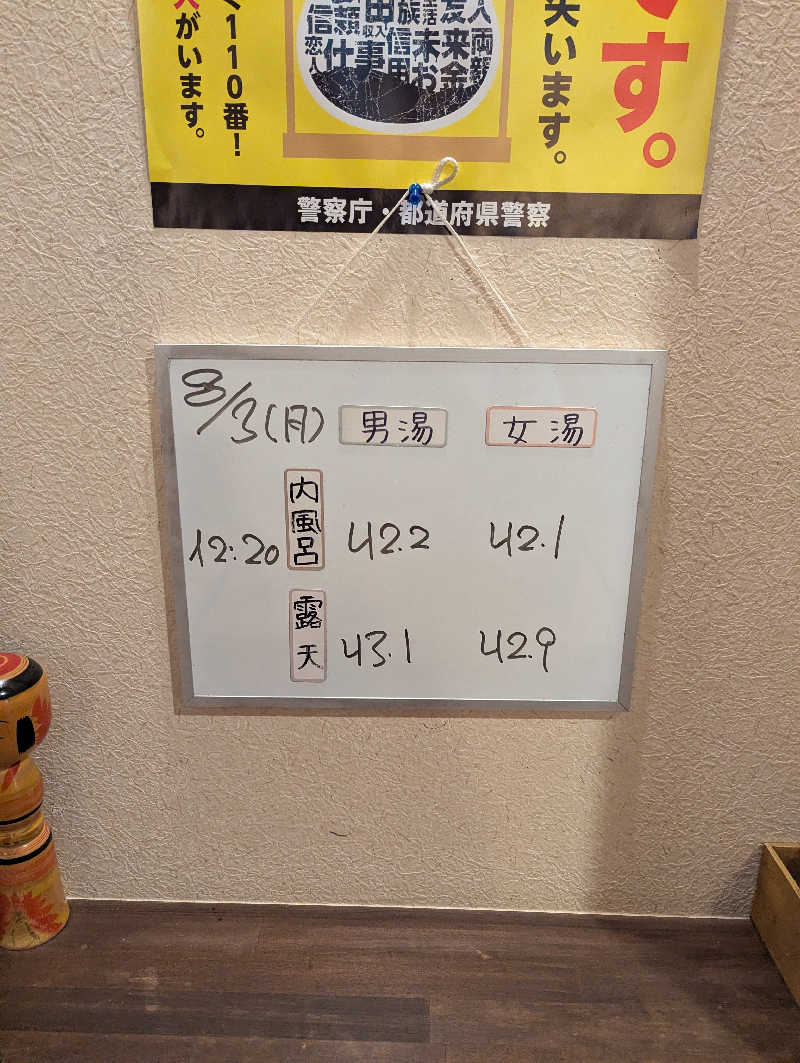 です。
失います。
人両親
友来金
活未お
族信用
田収入事
頼仕
信恋人
く110番!
人がいます。
警察庁・都道府県警察
8/3(月) 男湯 女湯
12:20 内風呂 42.2 42.1
露天 43.1 42.9